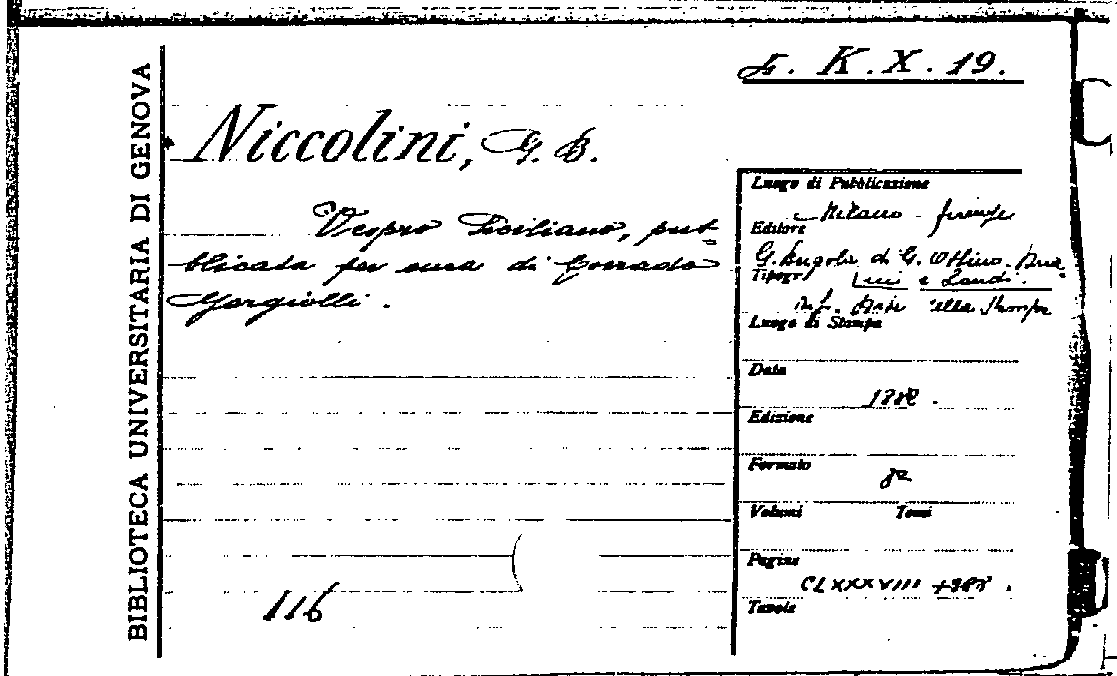 BIBLIOTECA UNIVERSITARIA DI GENOVA
F. K. X. 19.
Niccolini, G. B.
Vespro Siciliano, pub=
blicata per cura di Corrado
Gargiolli.
116
Luogo di Pubblicazione
Milano - Firenze
Editore
G. di G.
Tipogr
e Landi.
Luogo di Stampa
Data
1882.
Edizione
Formato
8º
Volumi Tomi
Pagine
CLXXXVIII +
Tavole